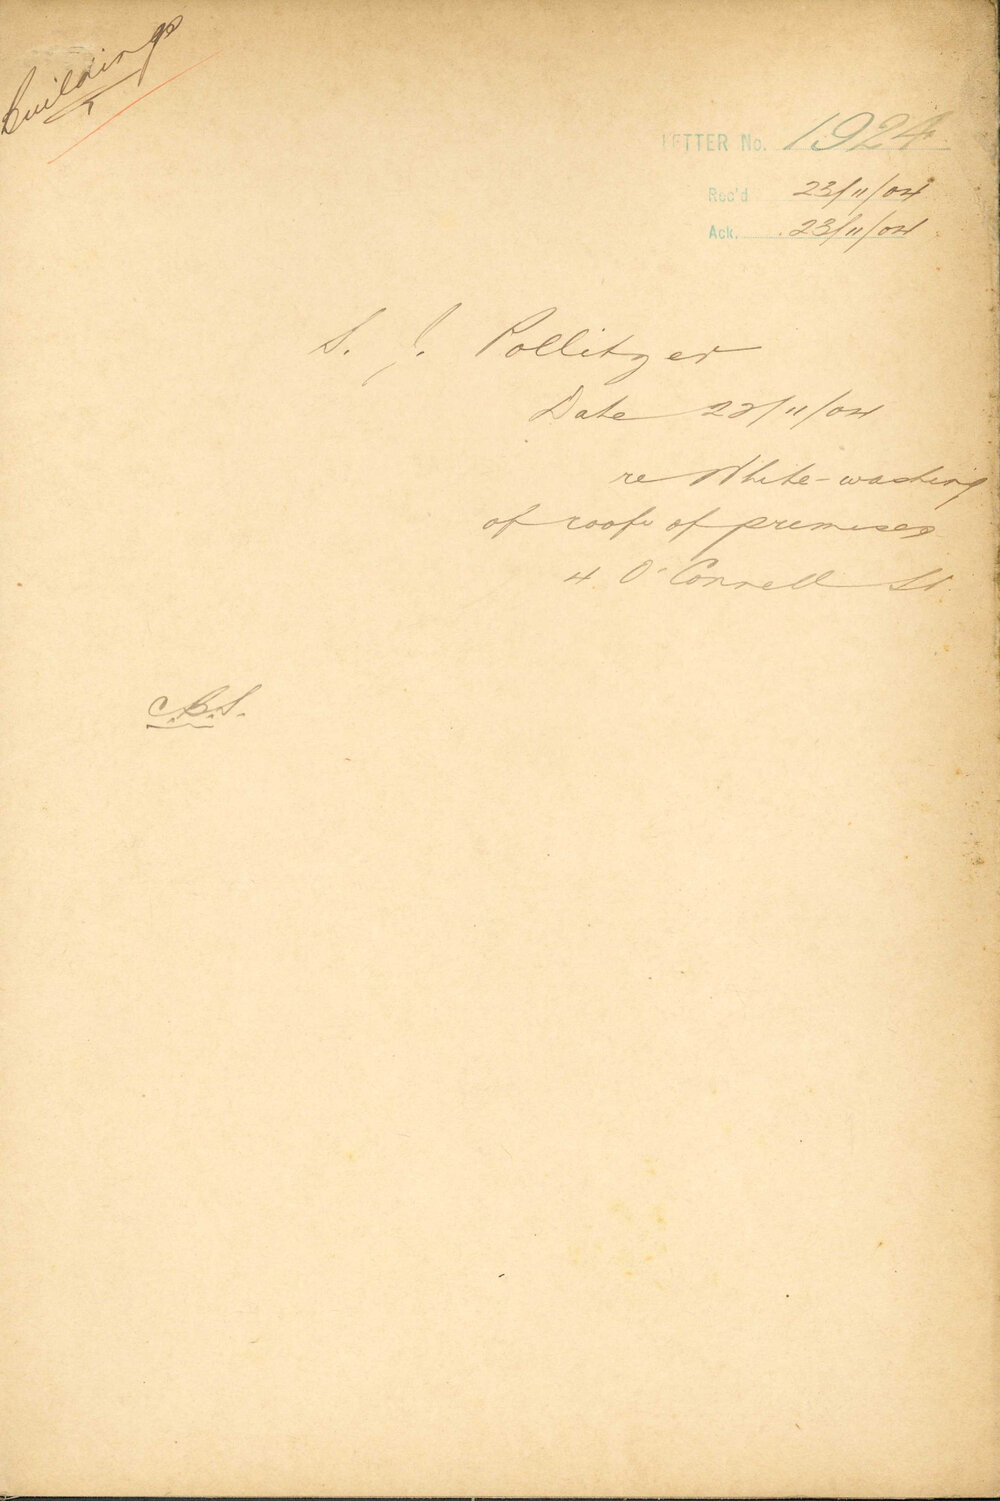 Buildings
LETTER No. 1924
Rec'd 23/11/04
Ack. 23/11/04
S. J. Pollitzer
Date 22/11/04
re White-washing
of roofs of premises
4 O'Connell St
C.B.S.